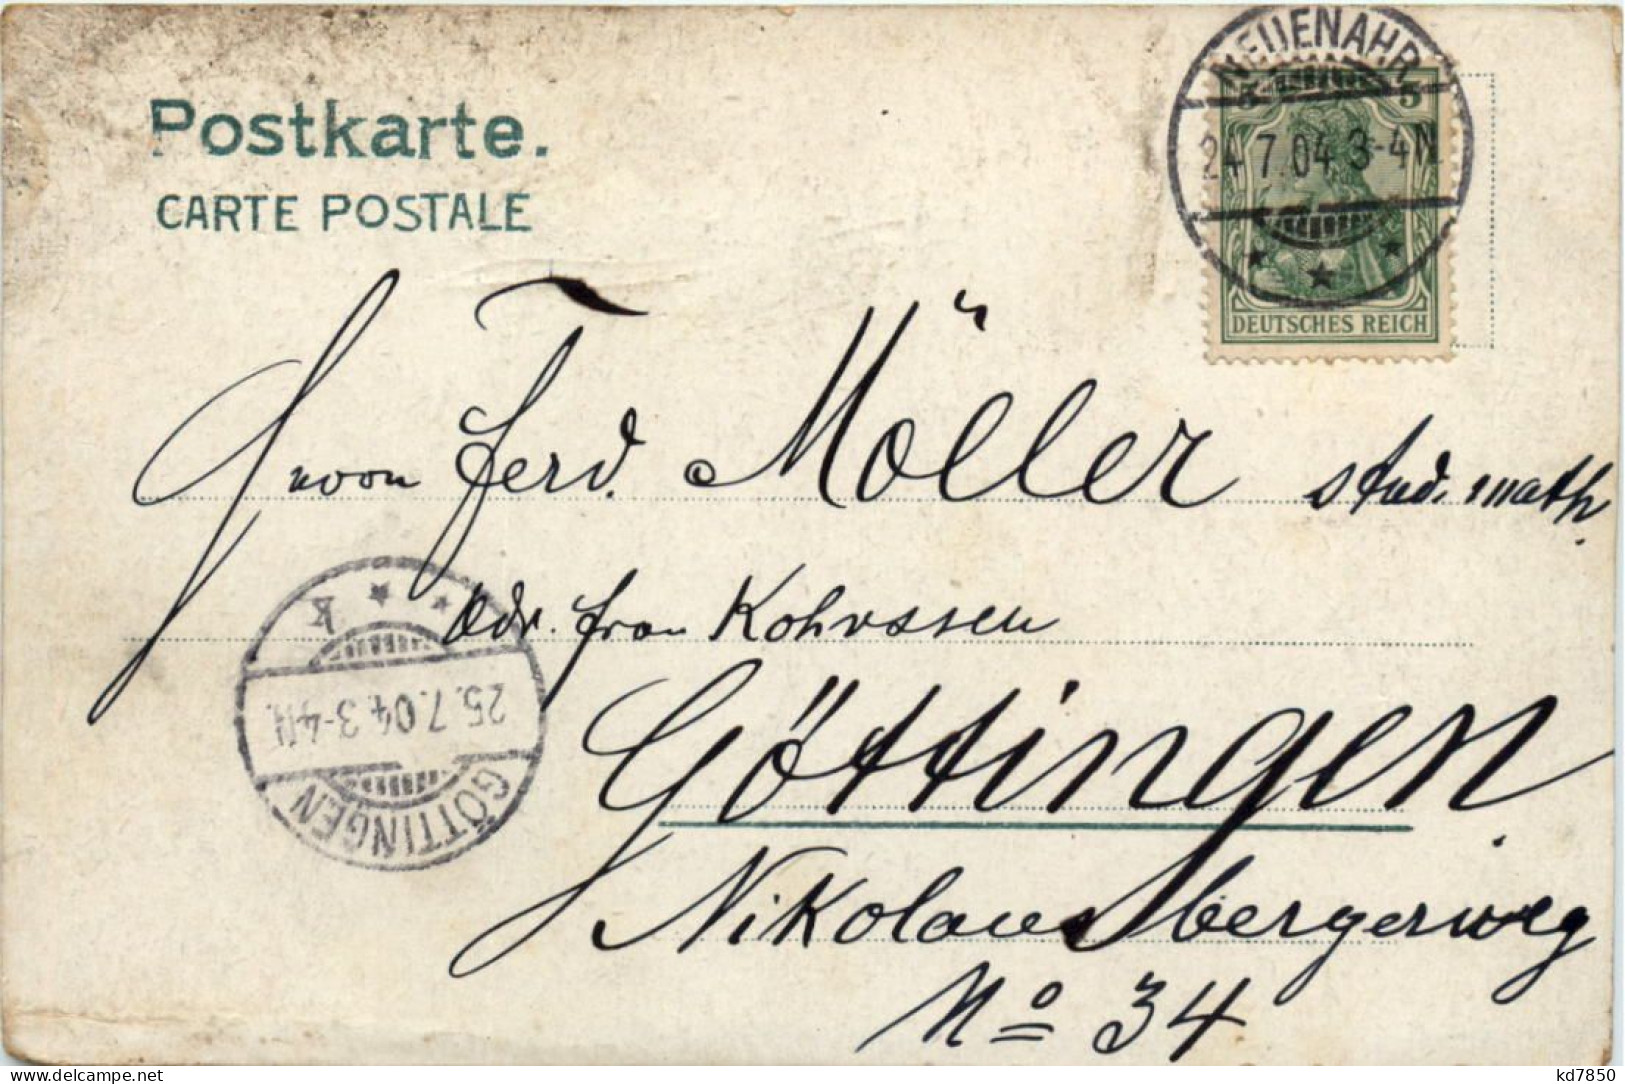 NEUENAHR
5 5
24.7.04.3-4N
DEUTSCHES REICH
Postkarte.
CARTE POSTALE
Ferd. Möller stud. math.
Adr. frau
25.7.04.3-4N.
GÖTTINGEN
Göttingen
Nikolausbergerweg
No 34
kd7850